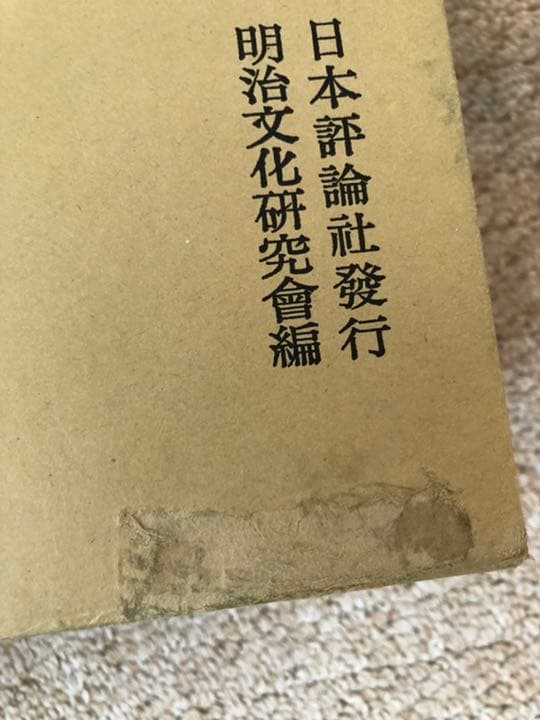 日本評論社發行
明治文化硏究會編